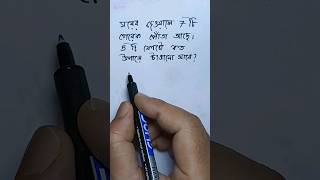 ঘরের দেওয়ালে 7 টি
পেরেক পোঁতা আছে।
5 টি ফটো কত
উপায়ে টাঙানো যাবে?